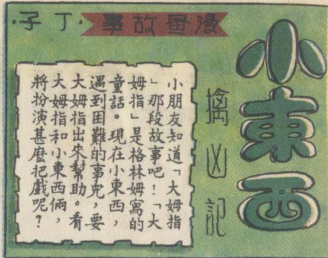 漫画故事·丁子·
小東西
擒凶記
小朋友知道「大姆指
」那段故事吧!「大
姆指」是格林姆寫的
童話。現在小東西,
遇到困難的事兒,要
大姆指出來幫助。看
大姆指和小東西倆,
將扮演甚麼把戲呢?